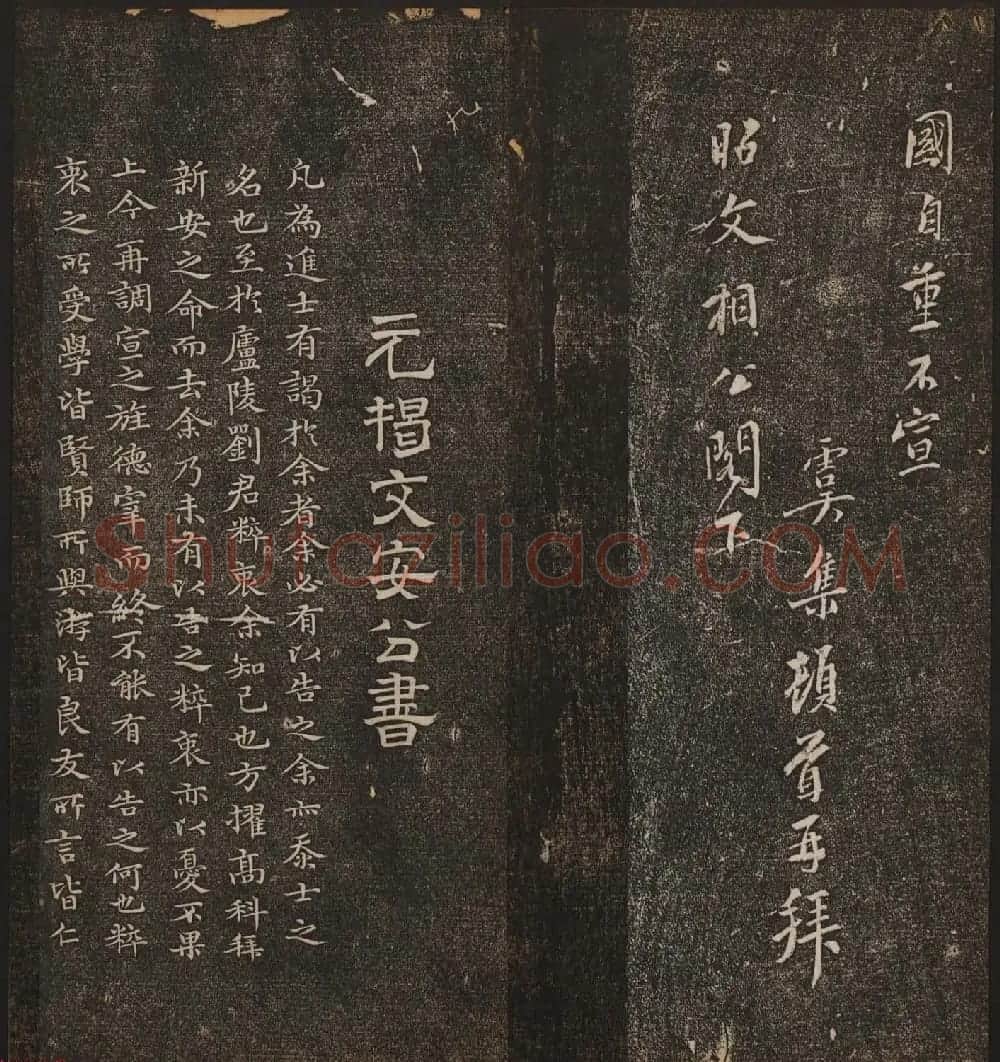 國自重不宣
虞集頓首再拜
昭文相公閣下
元揭文安公書
凡為進士有謁於余者余必有以告之余亦忝士之
名也至於廬陵劉君粹衷余知己也方擢高科拜
新安之命而去余乃未有以告之粹衷亦以憂不果
上今再調宣之旌德宰而終不能有以告之何也粹
衷之所受學皆賢師所與游皆良友所言皆仁
九
Shufaziliao.COM